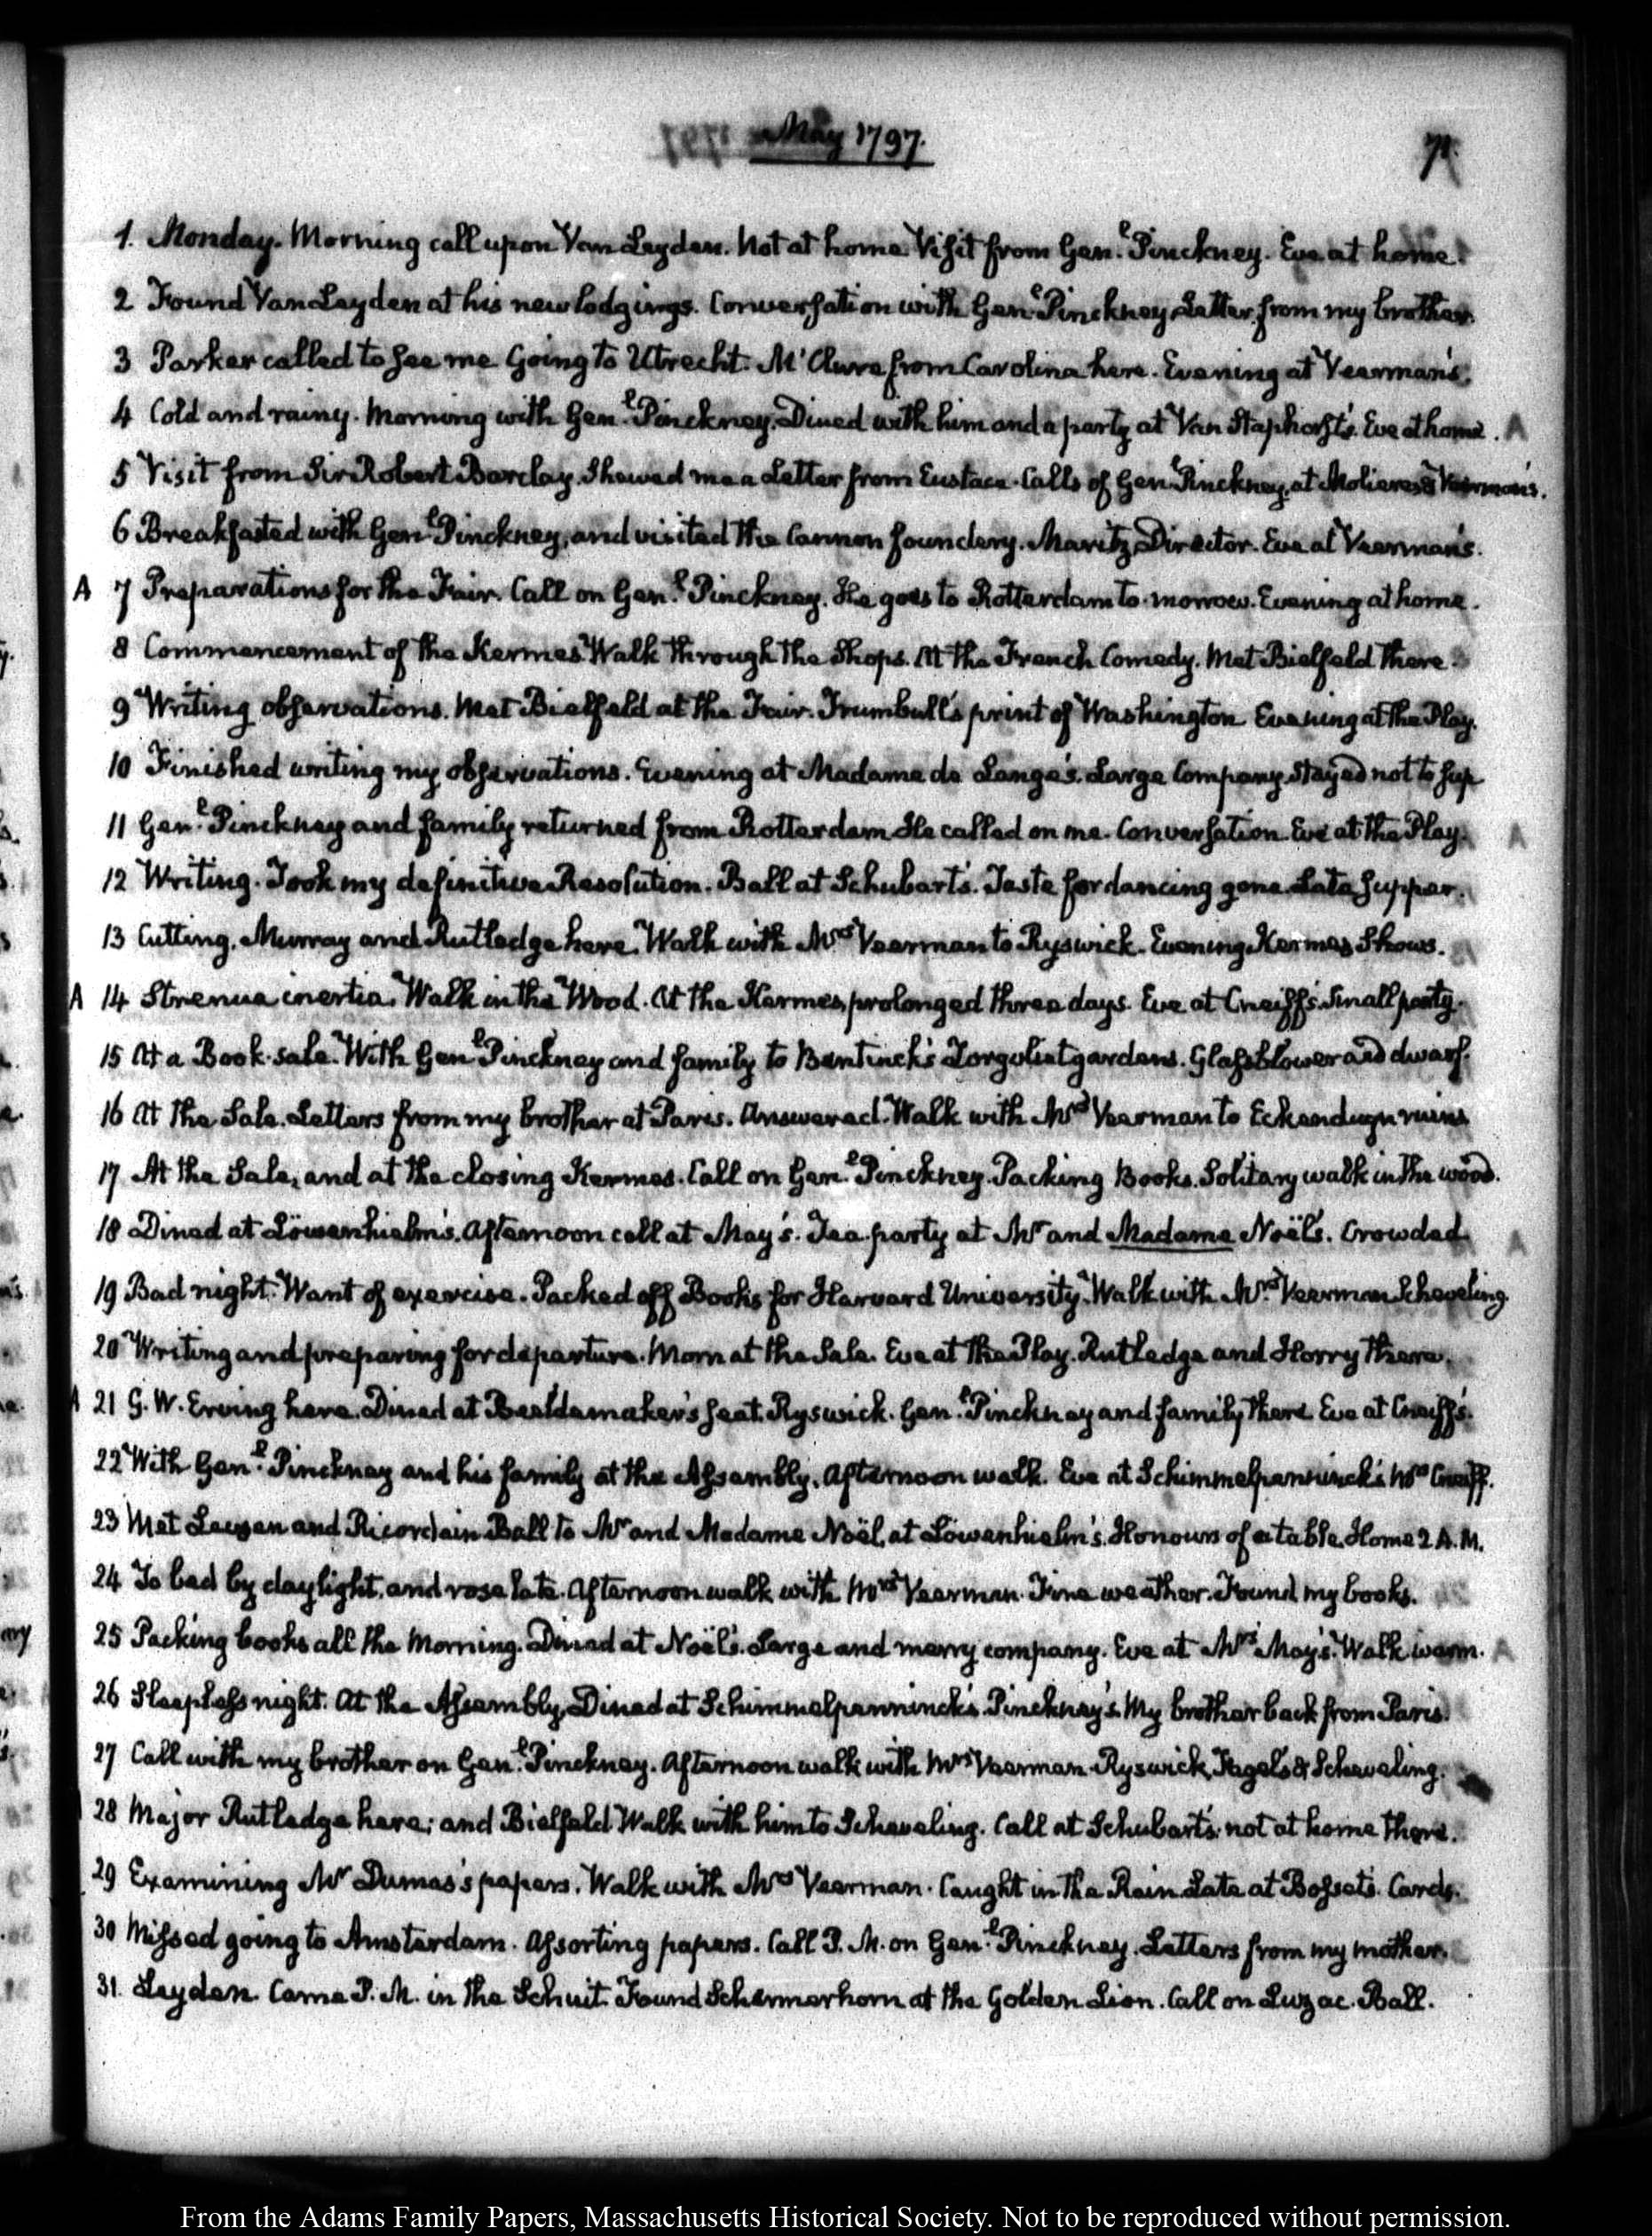 May 1797.
71.
1. Monday. Morning call upon Van Leyden. Not at home. Visit from Gen.l Pinckney. Eve at home.
2 Found Van Leyden at his new lodgings. Conversation with Gen.l Pinckney. Letter from my brother.
3 Parker called to see me. Going to Utrecht. M'Clure from Carolina here. Evening at Veerman's.
4 Cold and rainy. Morning with Gen.l Pinckney. Dined with him and a party at Van Staphorst's. Eve at home.
5 Visit from Sir Robert Barclay. Shewed me a Letter from Eustace. Calls of Gen.l Pinckney, at Molieres & Veerman's.
6 Breakfasted with Gen.l Pinckney, and visited the Cannon foundery. Maritz Director. Eve at Veerman's.
A 7 Preparations for the Fair. Call on Gen.l Pinckney. He goes to Rotterdam to-morrow. Evening at home.
8 Commencement of the Kermes. Walk through the Shops. At the French Comedy. Met Bielfeld there.
9 Writing observations. Met Bielfeld at the Fair. Trumbull's print of Washington. Evening at the Play.
10 Finished writing my observations. Evening at Madame de Lange's. Large Company. Stayed not to sup
11 Gen.l Pinckney and family returned from Rotterdam. He called on me. Conversation. Eve at the Play.
12 Writing. Took my definitive Resolution. Ball at Schubart's. Taste for dancing gone. Late supper.
13 Cutting, Murray and Rutledge here. Walk with Mrs Veerman to Ryswick. Evening Kermes Shows.
A 14 Strenua inertia. Walk in the Wood. At the Kermes, prolonged three days. Eve at Cneiff's. Small party.
15 At a Book-sale. With Gen.l Pinckney and family to Bentinck's Zorgvliet gardens. Glassblower and dwarf.
16 At the Sale. Letters from my brother at Paris. Answered. Walk with Mrs Veerman to Eckenduyn ruins
17 At the Sale, and at the closing Kermes. Call on Gen.l Pinckney. Packing Books. Solitary walk in the wood.
18 Dined at Löwenhielm's. Afternoon call at May's. Tea-party at Mr and Madame Noël's. Crowded.
19 Bad night. Want of exercise. Packed off Books for Harvard University. Walk with Mrs Veerman Scheveling.
20 Writing and preparing for departure. Morn at the Sale. Eve at the Play. Rutledge and Horry there.
A 21 G. W. Erving here. Dined at Beeldemaker's seat. Ryswick. Gen.l Pinckney and family there. Eve at Cneiff's.
22 With Gen.l Pinckney and his family at the Assembly. Afternoon walk. Eve at Schimmelpenninck's. Mrs Cneiff.
23 Met and Ball to Mr and Madame Noël, at Löwenhielm's. Honours of a table. Home 2 A.M.
24 To bed by daylight, and rose late. Afternoon walk with Mrs Veerman. Fine weather. Found my books.
25 Packing books all the Morning. Dined at Noël's. Large and merry company. Eve at Mrs May's. Walk warm.
26 Sleepless night. At the Assembly. Dined at Schimmelpenninck's. Pinckney's. My brother back from Paris.
27 Call with my brother on Gen.l Pinckney. Afternoon walk with Mrs Veerman. Ryswick, Fagel's & Scheveling.
28 Major Rutledge here; and Bielfeld. Walk with him to Scheveling. Call at Schubart's not at home there.
29 Examining Mr Dumas's papers. Walk with Mrs Veerman. Caught in the Rain. Late at Bosset's. Cards.
30 Missed going to Amsterdam. Assorting papers. Call P. M. on Gen.l Pinckney. Letters from my mother.
31. Leyden. Came P. M. in the Schuit. Found Schermerhorn at the Golden Lion. Call on Luzac. Ball.
From the Adams Family Papers, Massachusetts Historical Society. Not to be reproduced without permission.